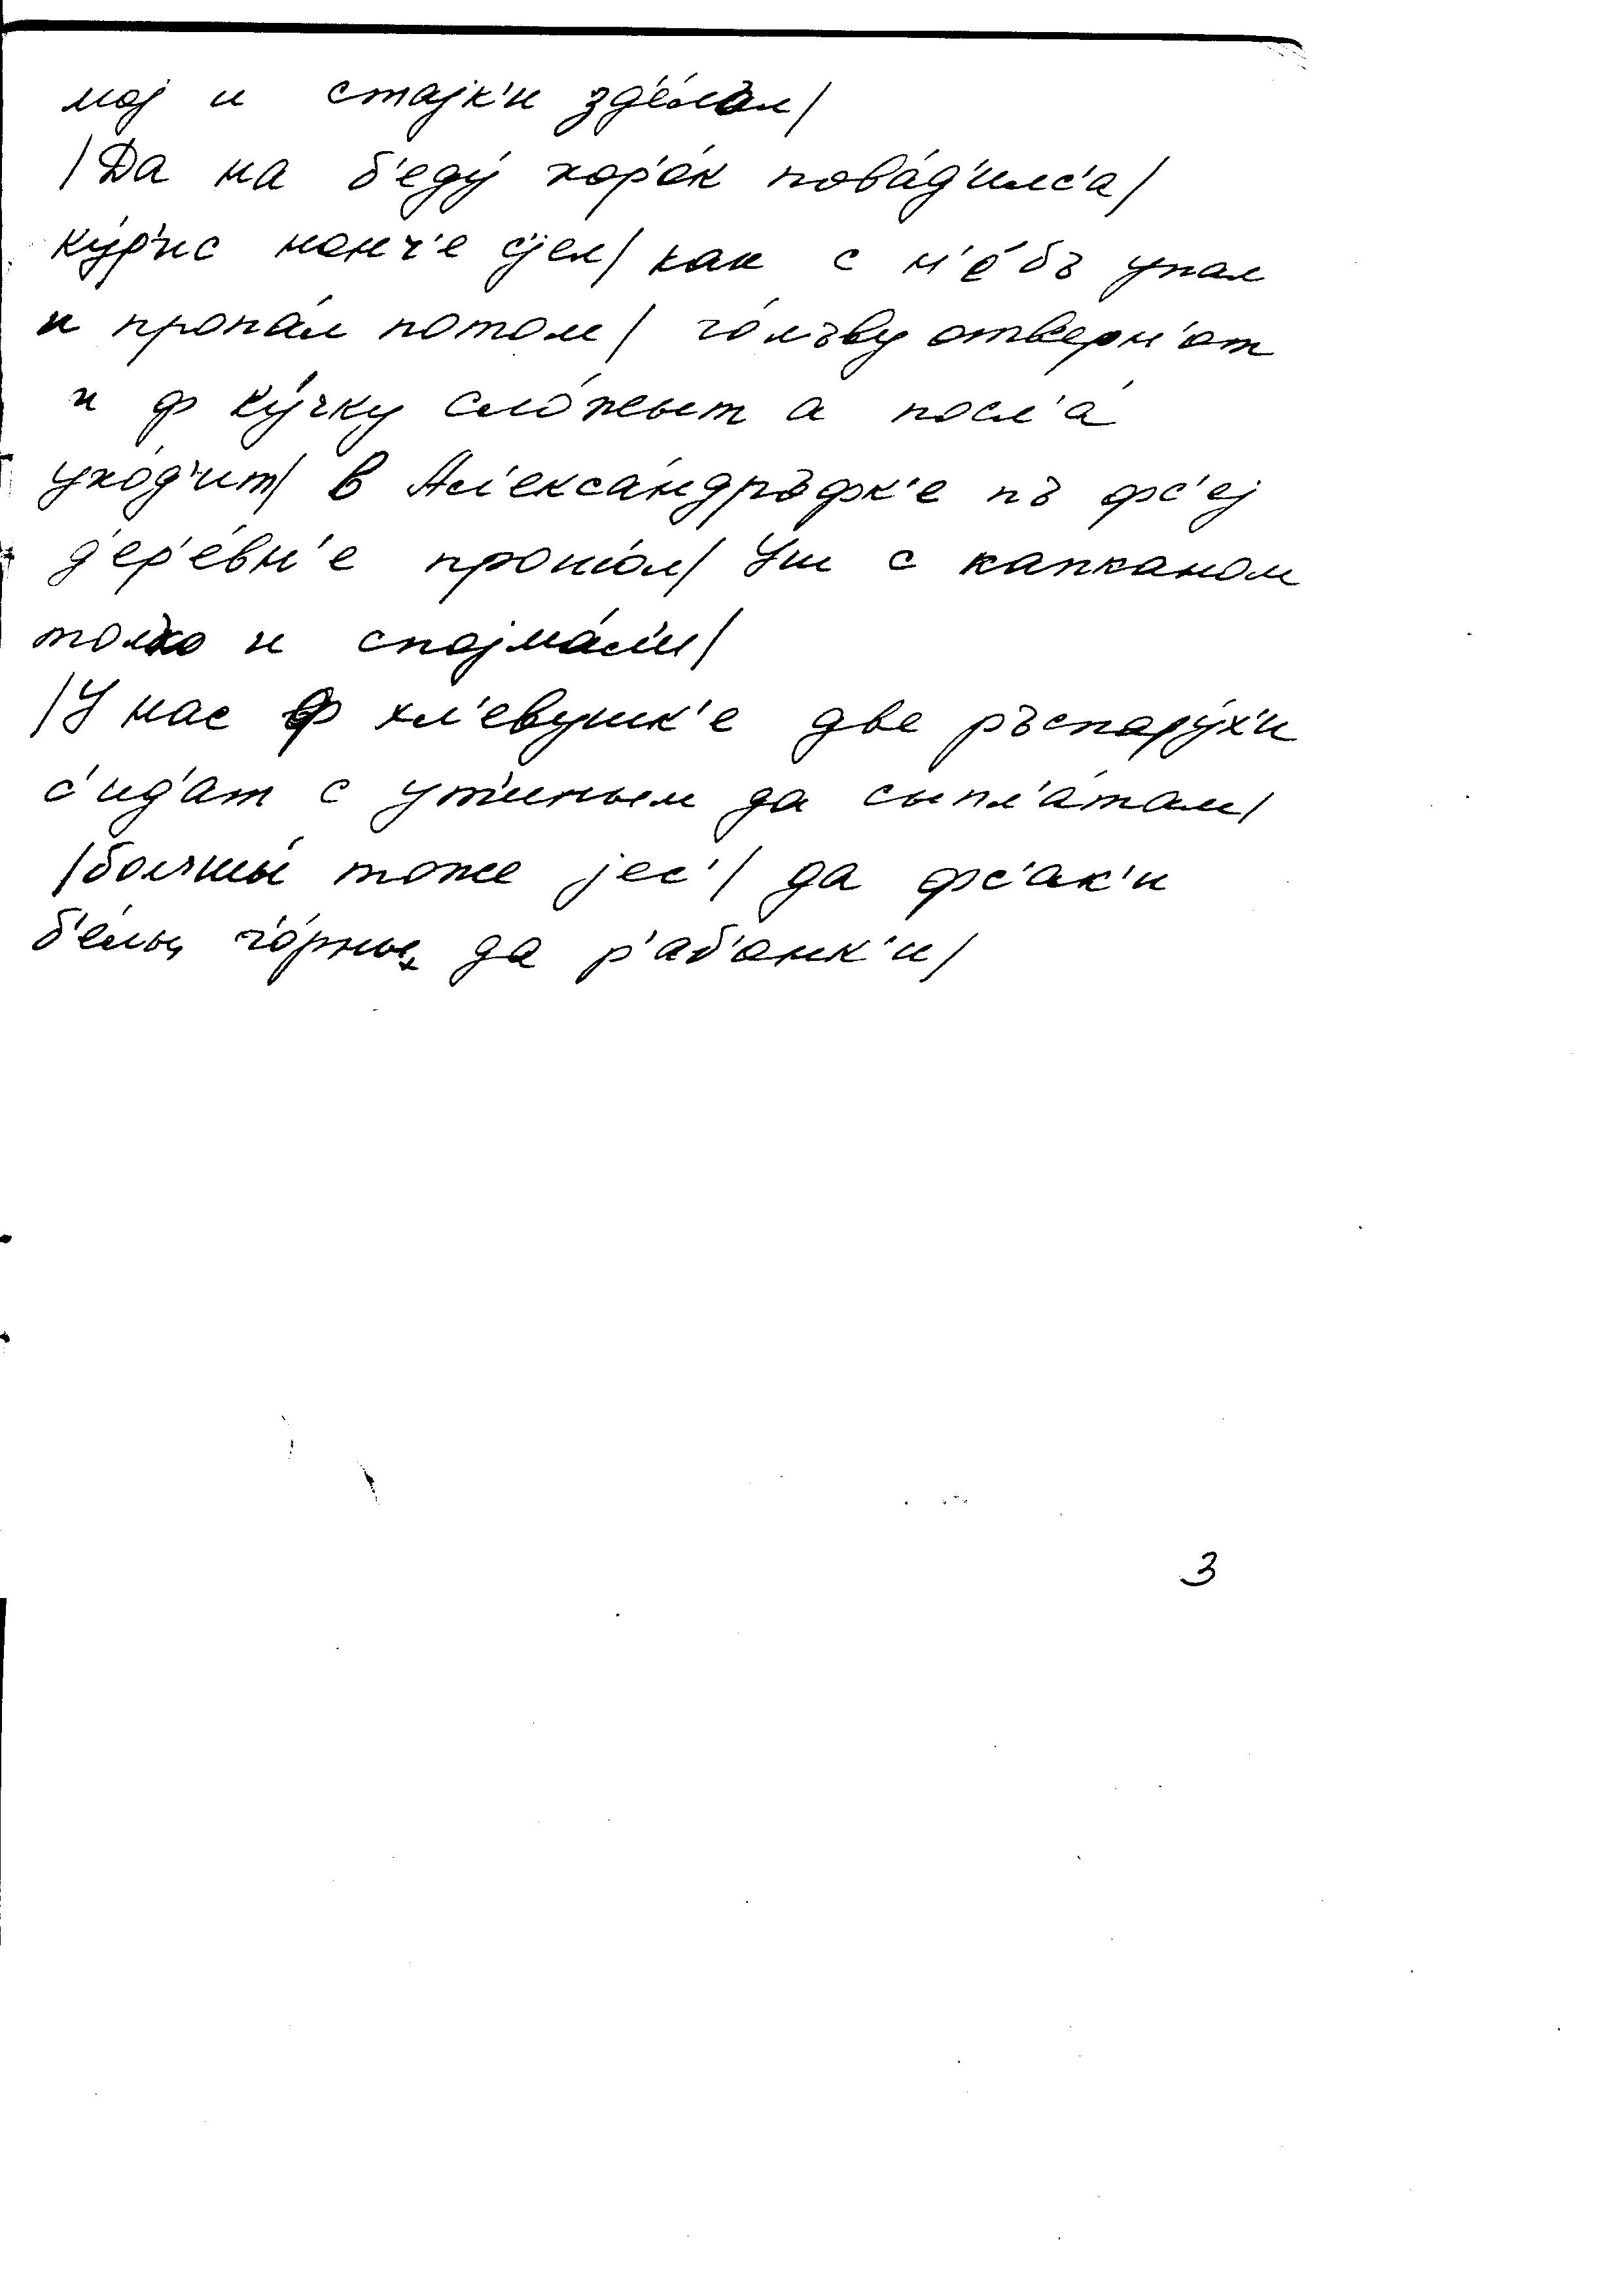 мој и стајк'и зд'е́лал/
/Да на б'еду́ хор'о́к пова́д'илс'а/
ку́р'ис нонч'е с'јел/ как с н'е́бъ упал
и пропа́л потом/ го́лъву отверн'от
и ф ку́чку сло́жыт а посл'а́
ухо́д'ит/ в Ал'екса́ндръфк'е пъ фс'еј
д'ер'е́вн'е прошо́л/ Уш с капканом
толко и спојма́л'и/
/У нас ф хл'евушк'е две ръспару́х'и
с'ид'ат с ут'иным да сыпл'а́там/
/болшы́ тоже јес'/ да фс'ак'и
б'е́лы, ч'о́рны, да р'аб'онк'и/
3